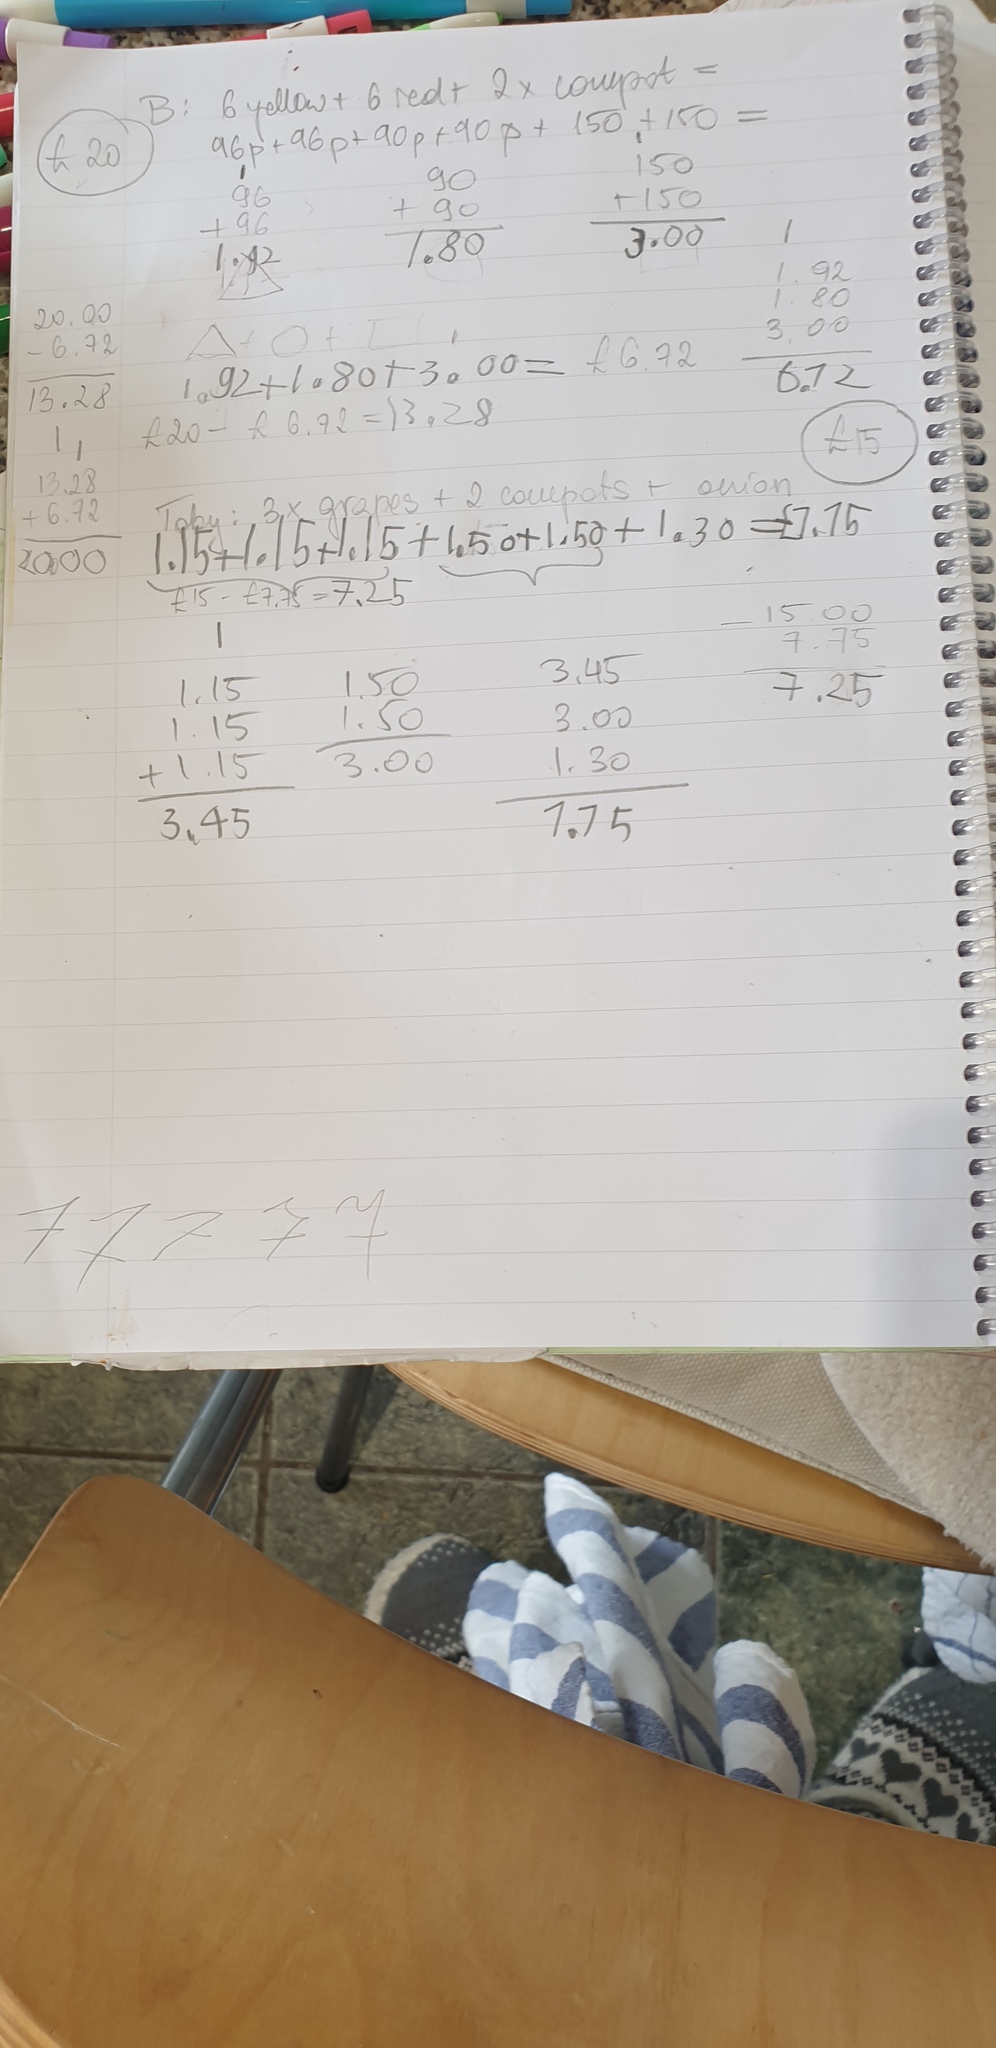 B: 6 yellow + 6 red + 2 x compot =
£ 20
96p + 96p + 90p + 90p + 150 + 150 =
1
96
+ 96
1.92
90
+ 90
1.80
150
+150
3.00
1
1.92
1.80
3.00
6.72
20.00
- 6.72
13.28
1 1
13.28
+ 6.72
20.00
△ + O + □
1.92 + 1.80 + 3.00 = £6.72
£20 - £6.72 = 13.28
£15
Toby: 3 x grapes + 2 compots + onion
1.15 + 1.15 + 1.15 + 1.50 + 1.50 + 1.30 = £7.75
£15 - £7.75 = 7.25
1
1.15
1.15
+ 1.15
3.45
1.50
1.50
3.00
3.45
3.00
1.30
7.75
- 15.00
7.75
7.25
7 7 7 7 7